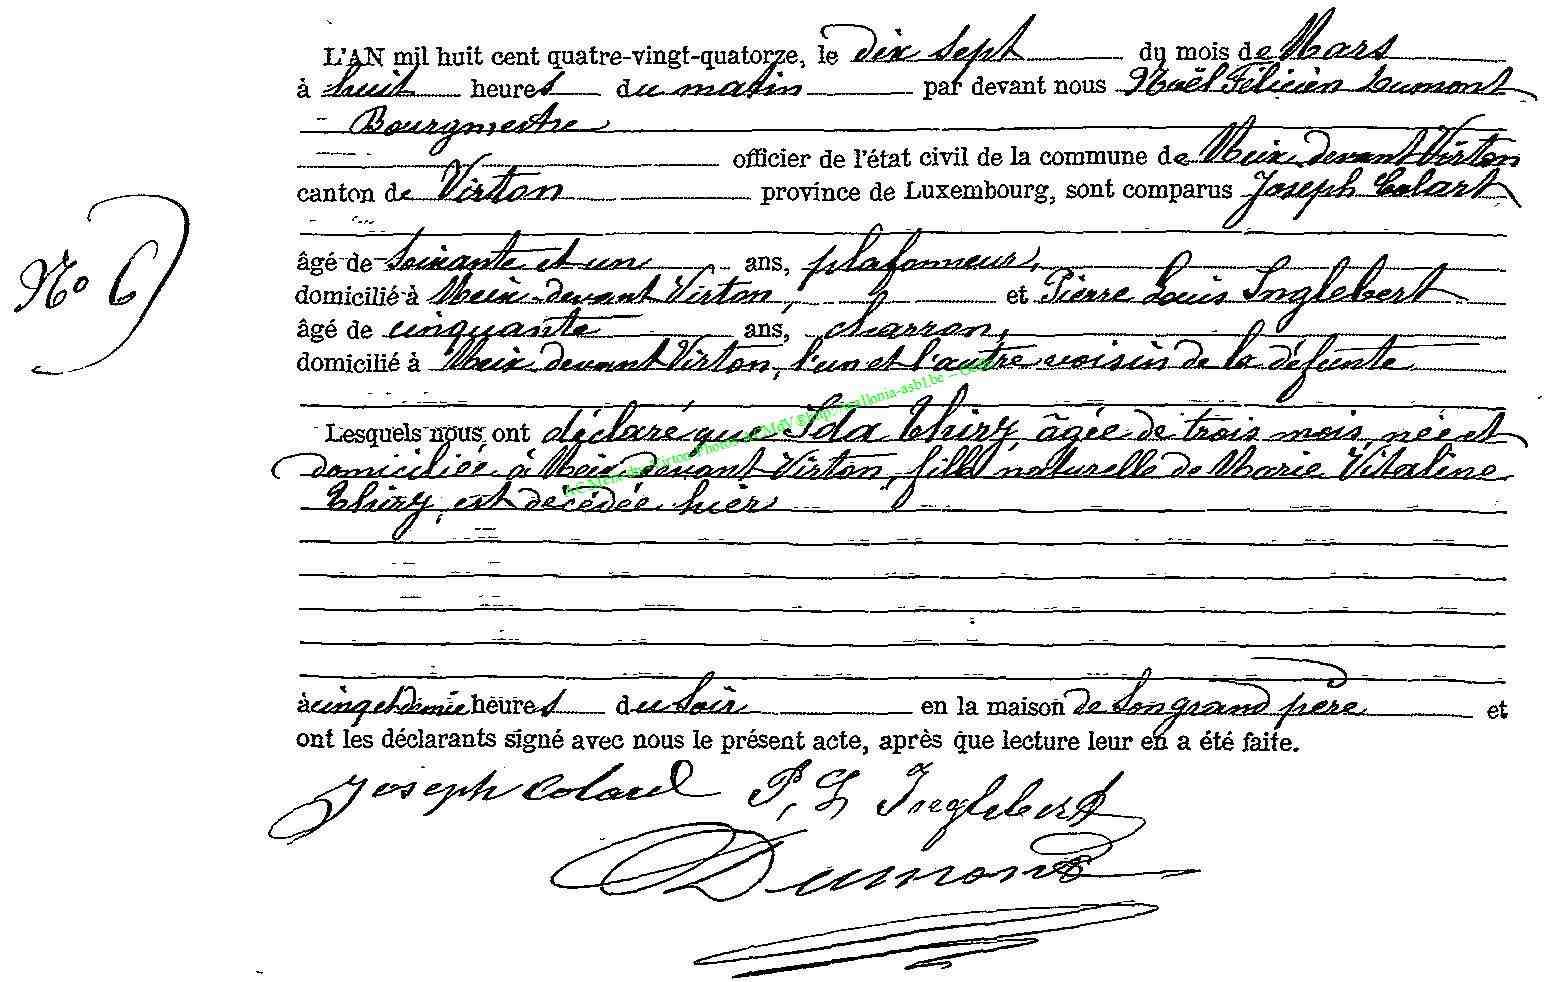 L'AN mil huit cent quatre-vingt-quatorze, le dix sept du mois de Mars
à huit heures du matin par devant nous Noël Félicien Dumont
Bourgmestre
officier de l'état civil de la commune de Meix devant Virton
canton de Virton province de Luxembourg, sont comparus Joseph Colart
âgé de soixante et un ans, plafonneur,
N° 6
domicilié à Meix devant Virton, et Pierre Louis Inglebert
âgé de cinquante ans, charron,
domicilié à Meix devant Virton, l'un et l'autre voisin de la défunte
Lesquels nous ont déclaré que Ida Thiry, âgée de trois mois, née et
domiciliée à Meix devant Virton, fille naturelle de Marie Vitaline
Thiry, est décédée hier
à cinq et demie heures du soir en la maison de son grand père et
ont les déclarants signé avec nous le présent acte, après que lecture leur en a été faite.
Joseph Colard P. L Inglebert
Dumont